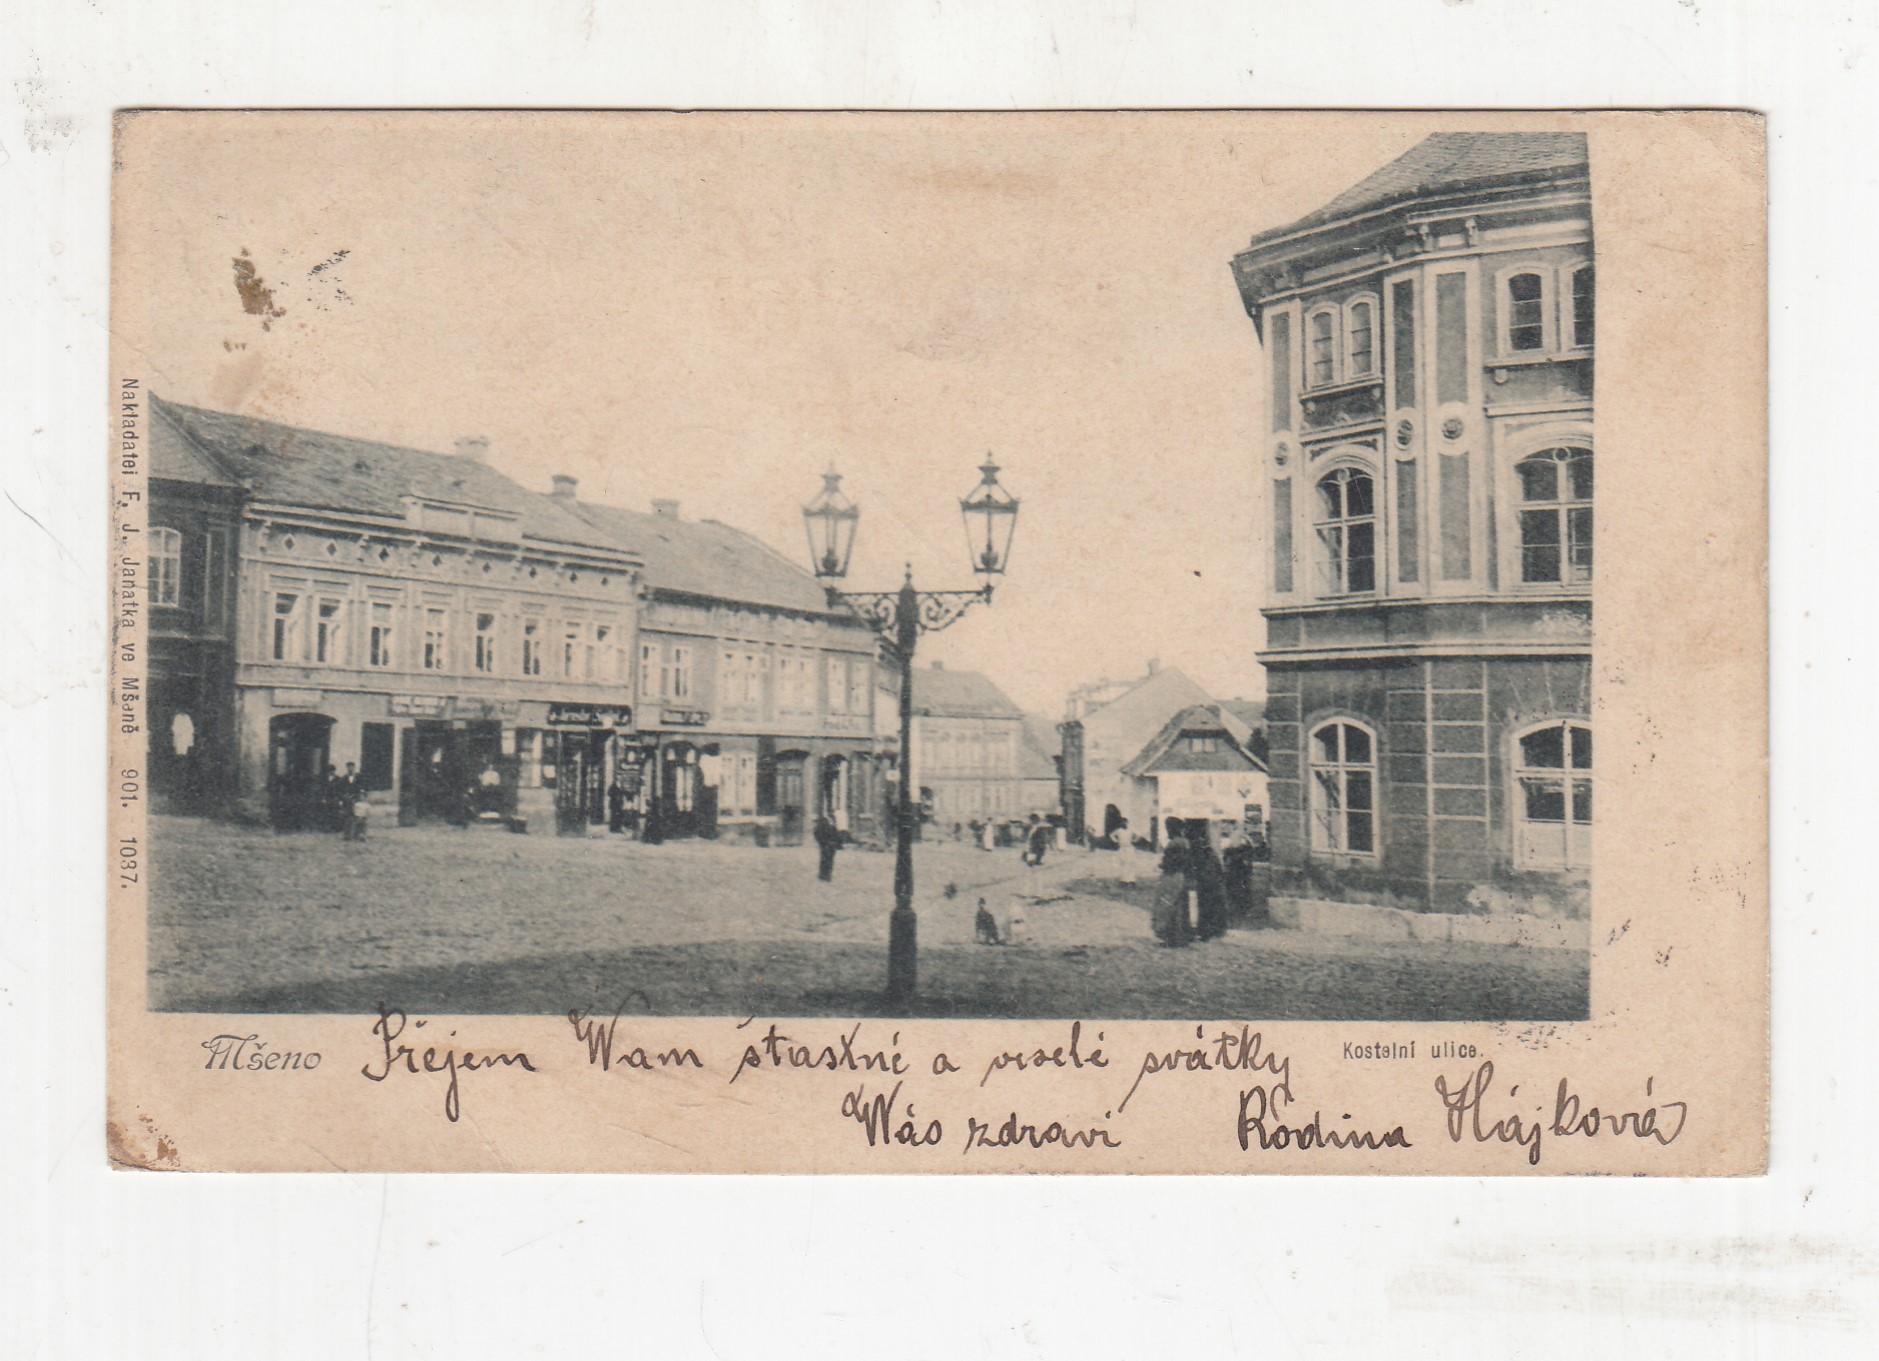 Nakladatel F. J. Janatka ve Mšeně 901. 1037.
Mšeno
Přejem Wam štastné a veselé svátky
Kostelní ulice.
Wás zdraví Rodina Hájková